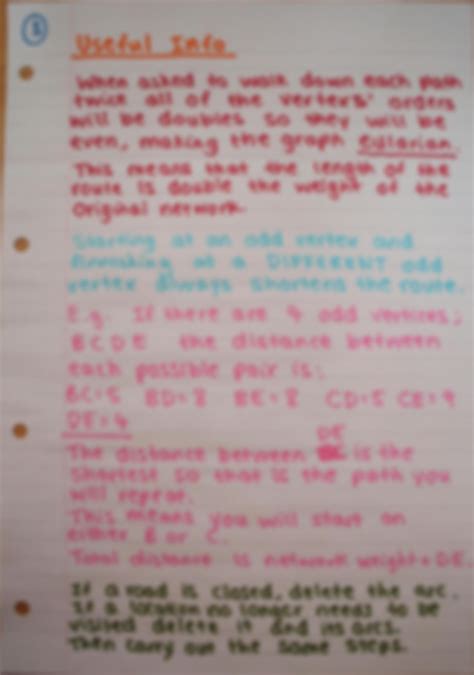 Useful Info
When asked to walk down each path
twice all of the vertexs' orders
will be doubles so they will be
even, making the graph Eularian.
This means that the length of the
route is double the weight of the
original network.
Starting at an odd vertex and
finnishing at a DIFFERENT odd
vertex always shortens the route.
E.g. If there are 4 odd vertices;
BCDE the distance between
each possible pair is:
BC=5 BD=8 BE=8 CD=5 CE=9
DE=4
DE
The distance between is the
shortest so that is the path you
will repeat.
This means you will start on
either B or C.
Total distance is network weight + DE.
If a road is closed, delete the arc.
If a location no longer needs to be
visited delete it and its arcs.
Then carry out the same steps.